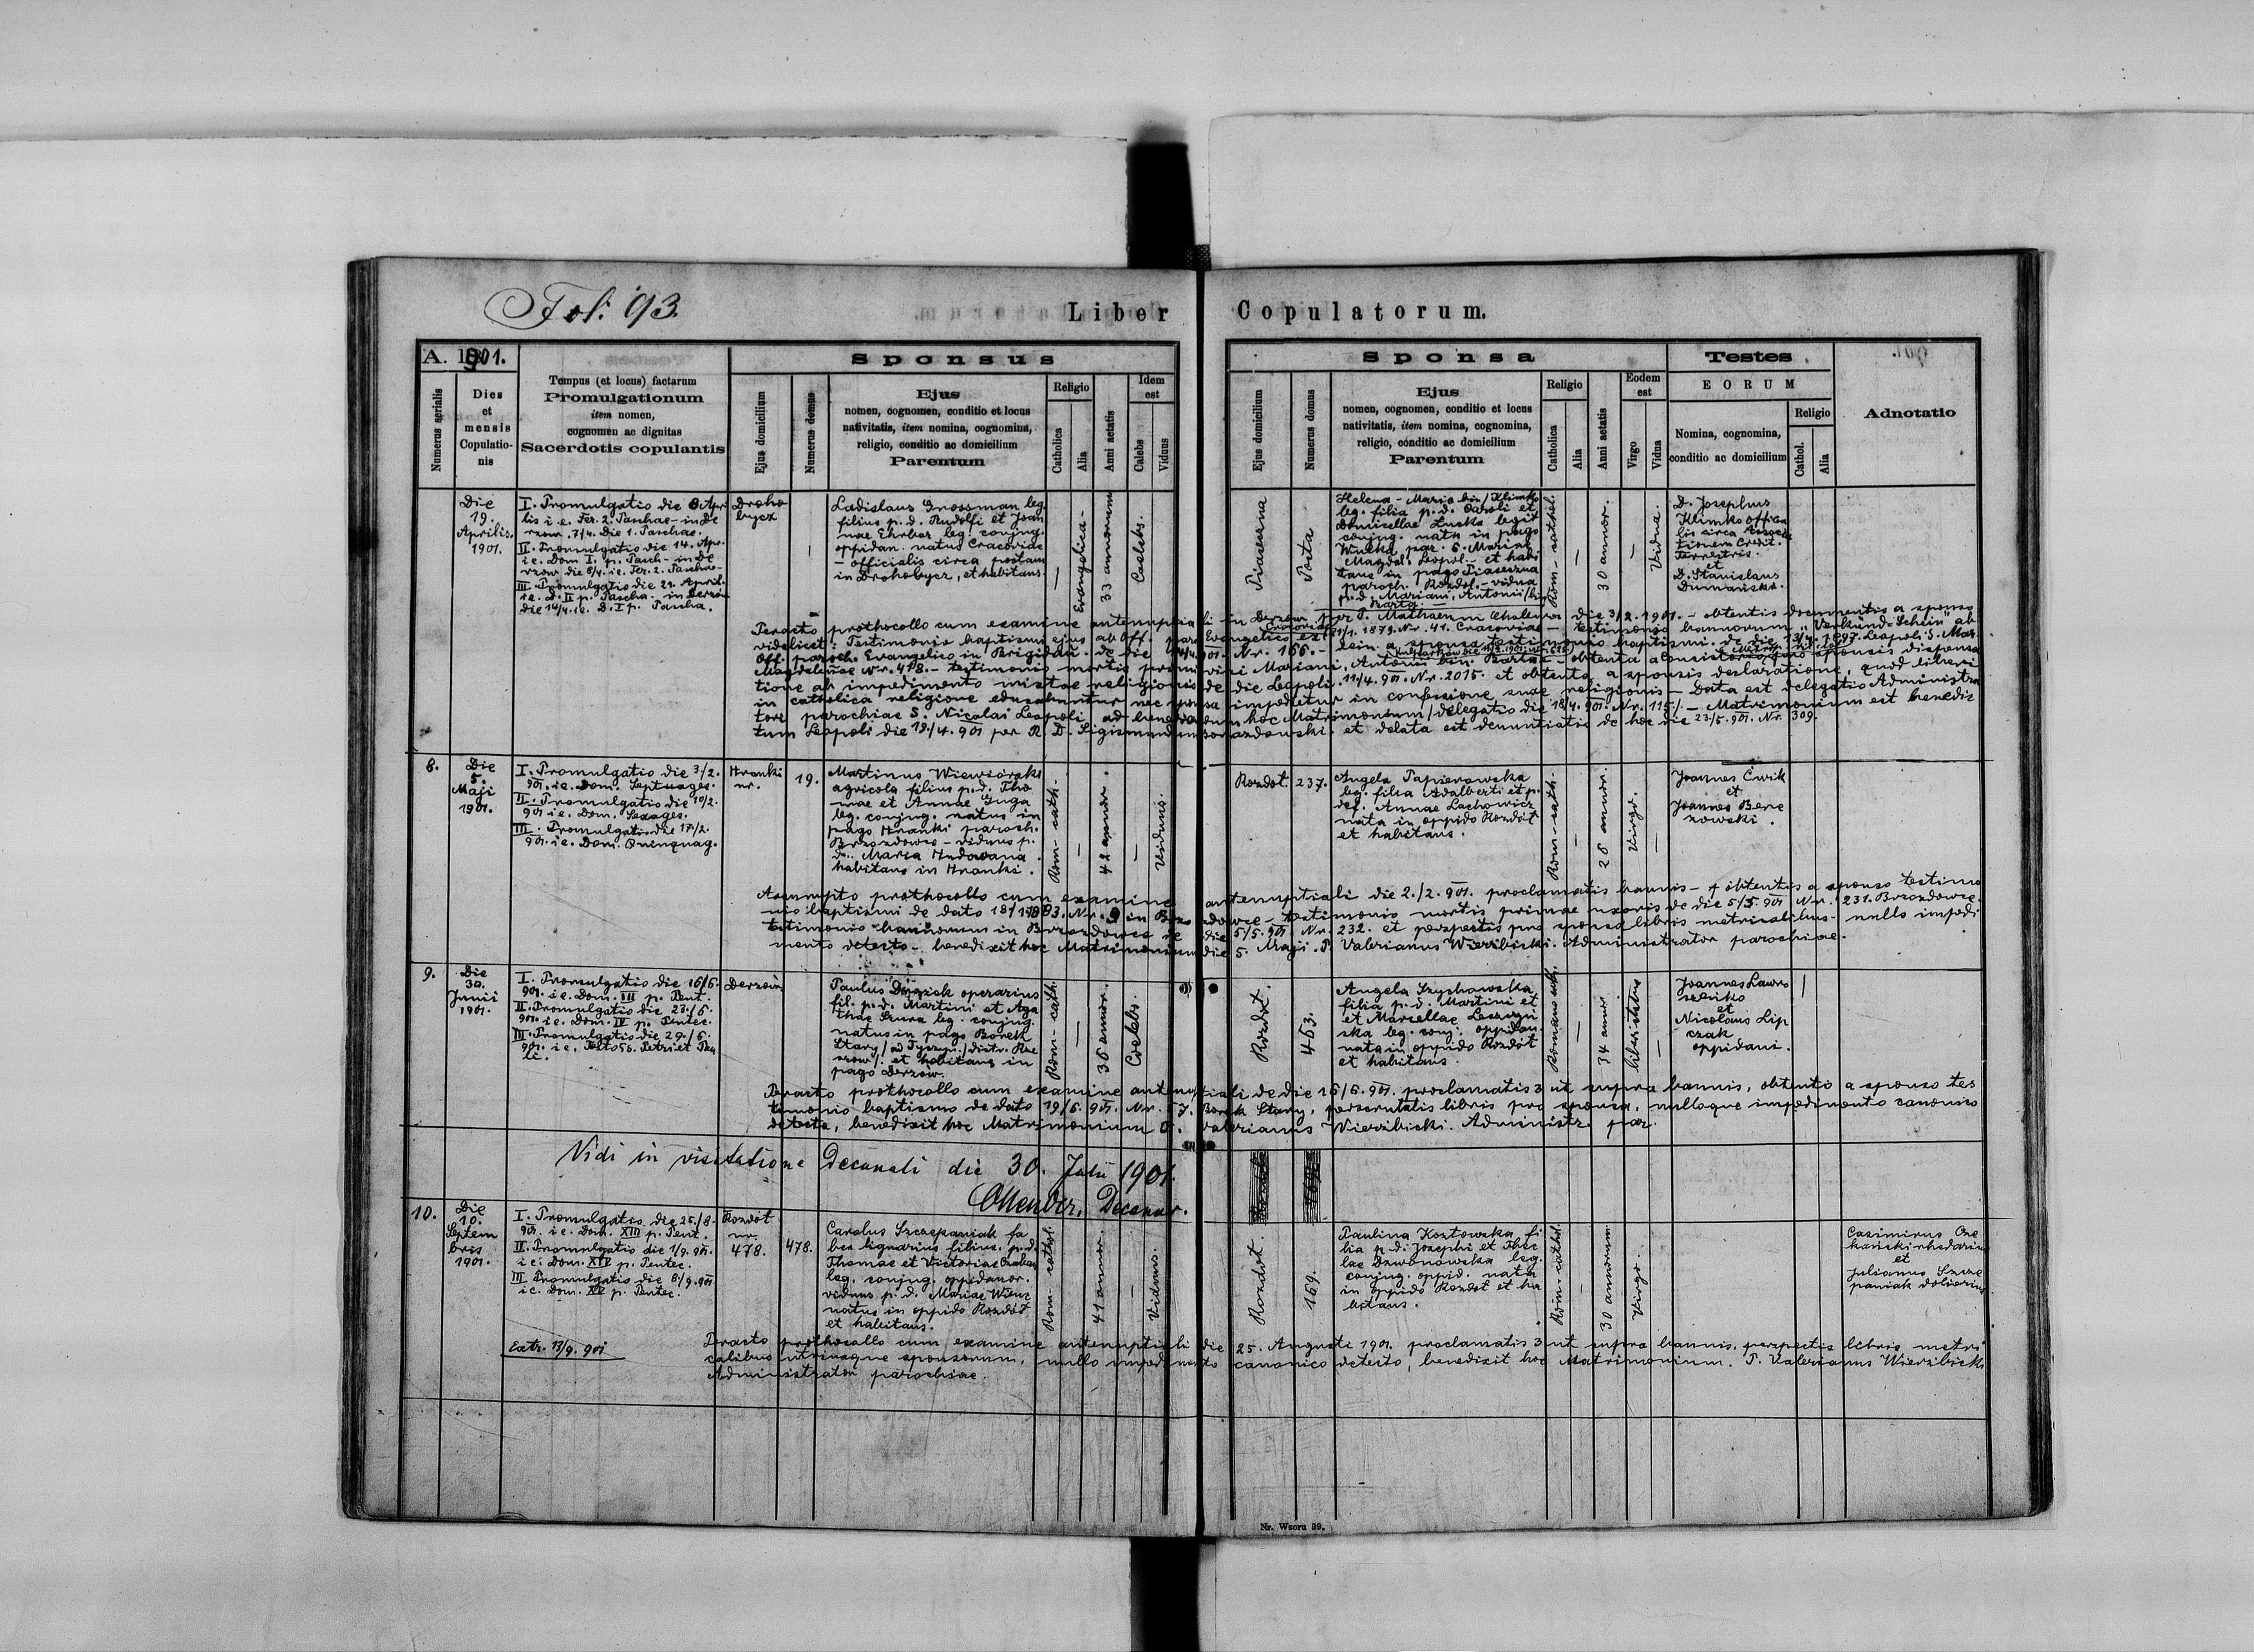 Fol: 93.
Liber Copulatorum.
A. 1901.
Numerus serialis
Dies
et
mensis
Copulatio-
nis
Tempus (et locus) factarum
Promulgationum
item nomen,
cognomen ac dignitas
Sacerdotis copulantis
Sponsus
Ejus domicilium
Numerus domus
Ejus
nomen, cognomen, conditio et locus
nativitatis, item nomina, cognomina,
religio, conditio ac domicilium
Parentum
Religio
Catholica
Alia
Anni aetatis
Idem
est
Calebs
Viduus
Sponsa
Ejus domicilium
Numerus domus
Ejus
nomen, cognomen, conditio et locus
nativitatis, item nomina, cognomina,
religio, conditio ac domicilium
Parentum
Religio
Catholica
Alia
Anni aetatis
Eodem
est
Virgo
Vidua
Testes
EORUM
Nomina, cognomina,
conditio ac domicilium
Religio
Cathol.
Alia
Adnotatio
Die
19.
Aprilis.
1901.
I. Promulgatio die 8 Apri
lis i. e. Fer. 2. Paschae - in De
rzow. 7/4. Die 1. Paschae.
II. Promulgatio die 14. Apr.
i.e. Dom I. p. Pasch - in De
rzow die 8/4. i.e. Fer. 2. Paschae-
III. Promulgatio die 21. April.
i.e. D. II p. Pascha. in Derzów
die 14/4. i.e. D. I p. Pascha.
Droho
bycz
Ladislaus Grossman leg.
filius p. d. Rudolfi et Joan
nae Ehrbar leg. conjug.
oppidan. natus Cracoviae
- officialis circa postam
in Drohobycz, et habitans.
Evangelica-
33 annorum
Caelebs.
Piaseczna
Posta
Helena - Maria bin / Klimko
leg. filia p. d. Caroli et
Domicellae Lucka legit
conjug. nata in pago
Wulka par. S. Mariae
Magdal. Leopol. - et habi
tans in pago Piaseczna
paroch. Rozdoł. - vidua
p. d. Mariani, Antonii / bin
Barta. -
Rom - cathol.
30 annor.
Vidua.
D. Josephus
Klimko offica
lis circa Associa
tionem Credit.
Terrestris.
et
D. Stanislaus
Dumański.
Peracto prothocollo cum examine antenuptiali in Derzów per P. Mathaeum Chalewa die 3/2. 1901. - obtentis documentis a sponso
videlicet: Testimonio baptismi ejus ab Off. paro Evangelico ex Cracovia 21/1. 1879. Nr. 41. Cracoviae - testimonio bannorum „Verkünd-Schein" ab
Off. paroch. Evangelico in Brigidau. de die 14/4. 901. Nr. 166. - dein a sponsa testimonio baptismi. de die 13/4. 1897. Leopoli S. Mar.
Magdalenae Nr. 418. - testimonio mortis primi viri Mariani, Antonii bin. Barta - obtenta a Consistorio pro sponsis dispensa
tione ab impedimento mixtae religionis de die Leopoli. 11/4. 901. Nr. 2015. et obtenta a sponsis declaratione, quod liberi
in catholica religione educabuntur nec sponsa impedietur in confessione suae religionis - Data est delegatio Administra
tori parochiae S. Nicolai Leopoli ad benedicendum hoc Matrimonium / delegatio die 18/4. 901. Nr. 115/. - Matrimonium est benedic
tum Leopoli die 19/4. 901 per R. D. Sigismundum Gorazdowski. et delata est denuntiatio de hoc die 23/5. 901. Nr. 309.
8.
Die
5.
Maji
1901.
I. Promulgatio die 3/2.
901. i.e. Dom. Septuages.
II. Promulgatio die 10/2.
901 i.e. Dom. Sexages.
III. Promulgatio die 17/2.
901. i.e. Dom. Quinquag.
Hranki
nr.
19.
Martinus Wiewiórski
agricola filius p. d. Tho
mae et Annae Guga
leg. conjug. natus in
pago Hranki paroch.
Brzozdowce - viduus p.
d. Maria Hudowana.
habitans in Hranki.
Rom - cath.
42 annor.
Viduus.
Rozdoł.
237.
Angela Papierowska
leg. filia Adalberti et p.
def. Annae Lachowicz
nata in oppido Rozdół
et habitans.
Rom - cath.
28 annor.
Virgo.
Joannes Ćwik
et
Joannes Bere
zowski.
Assumpto prothocollo cum examine antenuptiali die 2./2. 901. proclamatis bannis - obtentis a sponso testimo
nio baptismi de dato Nr. 9 in Brzozdowce - testimonio mortis primae uxoris de die 5/5. 901 Nr. 231. Brzozdowce.
testimonio bannorum in Brzozdowce de die 5/5. 901 Nr. 232. et perspectis pro sponsa libris metricalibus - nullo impedi
mento detecto - benedixit hoc Matrimonium die 5. Maji. P. Valerianus Wierzbicki. Administrator parochiae.
9.
Die
30.
Junii
1901.
I. Promulgatio die 16/6.
901. i.e. Dom. III p. Pent.
II. Promulgatio die 23./6.
901. i.e. Dom. IV p. Pentec.
III. Promulgatio die 29./6.
901. i.e. Festo SS. Petri et Pau
li.
Derzów.
Paulus operarius
fil. p. d. Martini et Aga
thae Szura leg. conjug.
natus in pago Borek
Stary / ad Tyczyn. / distr. Rze
szow /. et habitans in
pago Derzów.
Rom - cath.
36 annor.
Coelebs.
Rozdoł.
463.
Angela Szychowska
filia p. d. Martini et
et Marcellae Leszczyń
ska leg. conj. oppidan.
nata in oppido Rozdół
et habitans.
Romano cath.
34 annor.
Joannes Lawro
szenko
et
Nicolaus Lip
czak
oppidani.
Peracto prothocollo cum examine antenuptiali de die 16/6. 901. proclamatis 3 ut supra bannis, obtento a sponso tes
timonio baptismo de dato 19/6. 901. Nr. 57. Borek Stary, perscrutatis libris pro sponsa, nulloque impedimento canonico
detecto, benedixit hoc Matrimonium P. Valerianus Wierzbicki. Administr. par.
Vidi in visitatione Decanali die 30. Julii 1901.
Decanus.
10.
Die
10.
Septem
bris
1901.
I. Promulgatio die 25./8.
901. i.e. Dom. XIII p. Pent.
II. Promulgatio die 1/9. 901.
i.e. Dom. XIV p. Pentec.
III. Promulgatio die 8/9. 901
i.e. Dom. XV p. Pentec.
Extr. 13/9. 901
Rozdół
nr.
478.
478.
Carolus Szczepaniak fa
ber lignarius filius. p. d.
Thomae et Victoriae
leg. conjug. oppidanor.
viduus p. d. Mariae
natus in oppido Rozdół
et habitans.
Rom - cathol.
41 annor.
Viduus.
Rozdoł.
169.
Paulina Kozłowska fi
lia p. d. Josephi et Thec
lae Dzwonowska leg.
conjug. oppid. nata
in oppido Rozdoł et ha
bitans.
Rom - cathol.
30 annorum
Virgo.
Casimirus
et
Julianus Szcze
paniak doliarius
Peracto prothocollo cum examine antenuptiali die 25. Augusti 1901. proclamatis 3 ut supra bannis, perspectis libris metri
calibus utriusque sponsorum, nullo impedimento canonico detecto, benedixit hoc Matrimonium. P. Valerianus Wierzbicki
Administrator parochiae.
Nr. Wzoru 89.